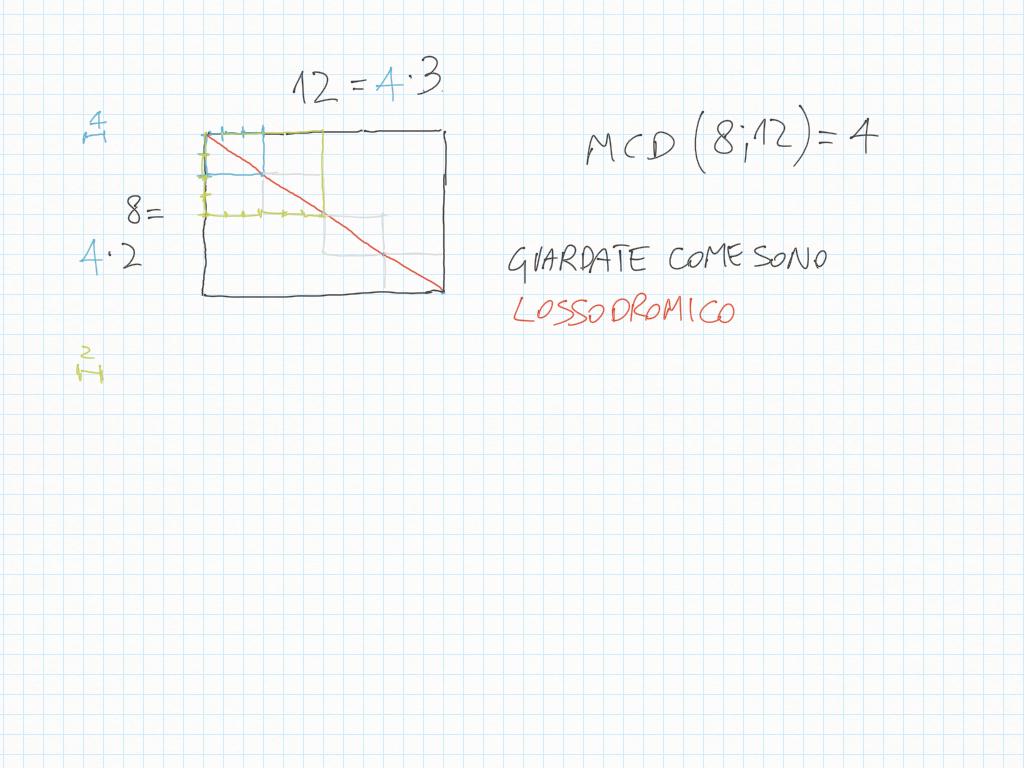 12 = 4·3
4
MCD (8;12) = 4
8 =
4·2
GUARDATE COME SONO
LOSSODROMICO
2